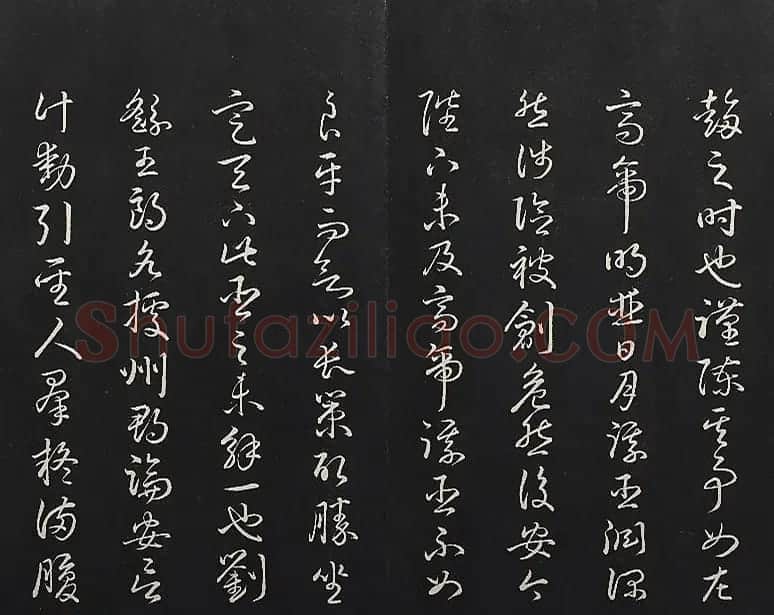 趨之時也謹陳其事如左
高帝明並日月謀臣淵深
然涉險被創危然後安今
陛下未及高帝謀臣不如
良平而欲以長策取勝坐
定天下此臣之未解一也劉
繇王朗各據州郡論安言
計動引聖人羣疑滿腹
Shufaziliao.COM